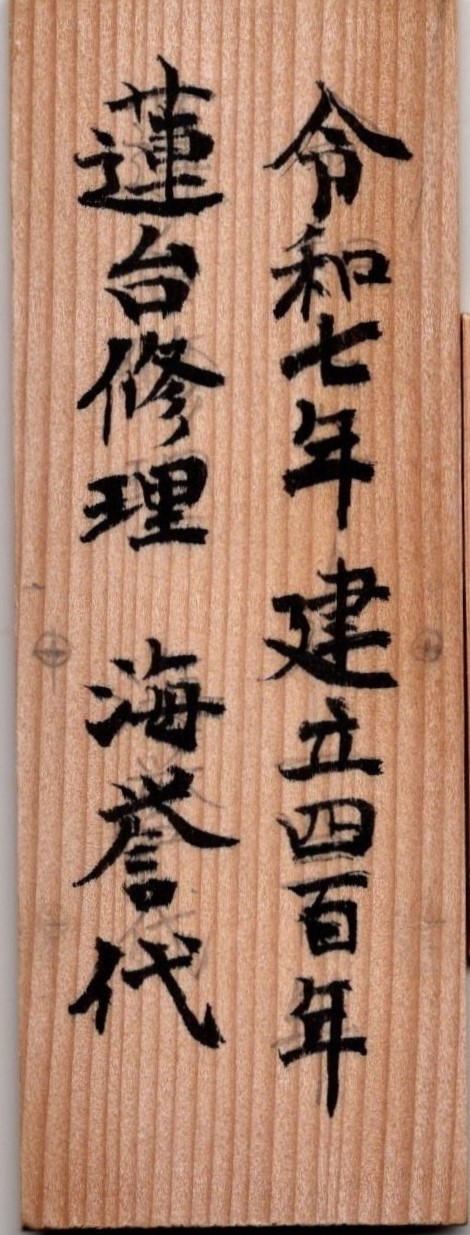 令和七年 建立四百年
蓮台修理 海誉代